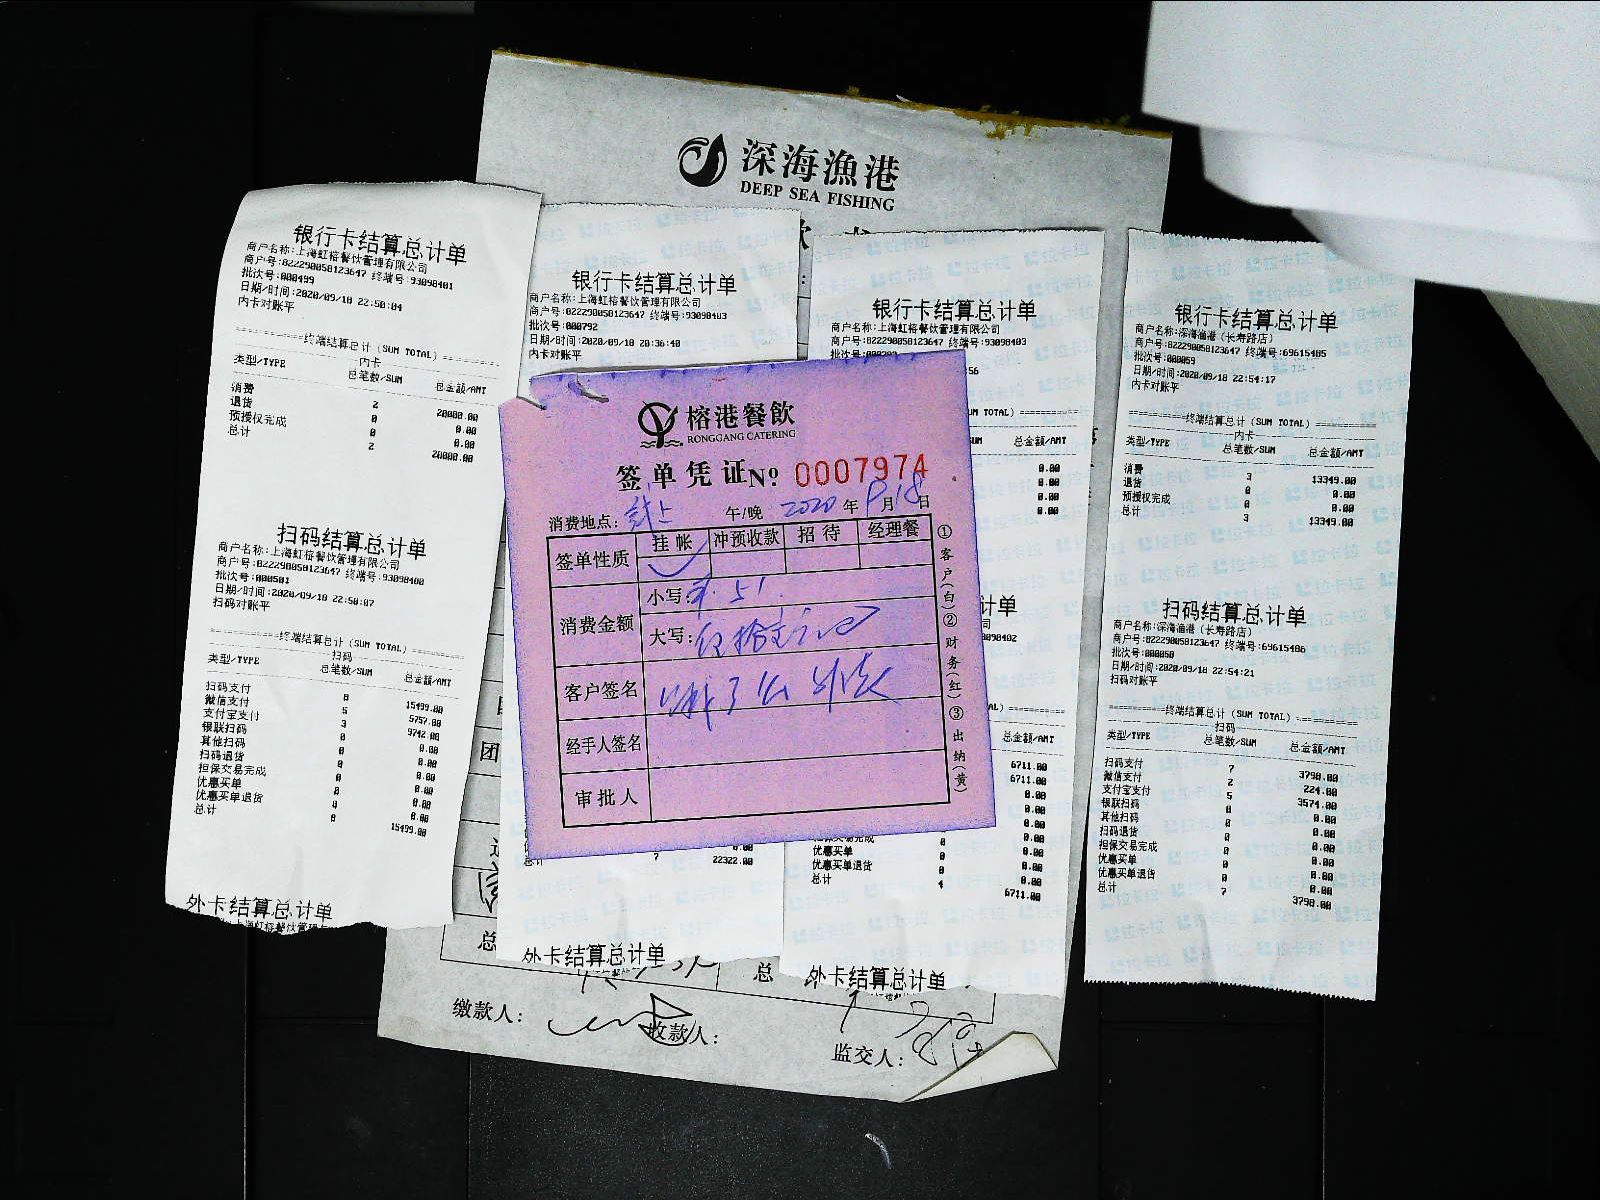 深海漁港
DEEP SEA FISHING
银行卡结算总计单
商户名称:上海虹榕餐饮管理有限公司
商户号:822290058123647 终端号:93098401
批次号:000499
日期/时间:2020/09/18 22:50:04
内卡对账平
终端结算总计(SUM TOTAL)
内卡
类型/TYPE 总笔数/SUM 总金额/AMT
消费 2 20000.00
退货 0 0.00
预授权完成 0 0.00
总计 2 20000.00
扫码结算总计单
商户名称:上海虹榕餐饮管理有限公司
商户号:822290058123647 终端号:93098400
批次号:000501
日期/时间:2020/09/18 22:50:07
扫码对账平
终端结算总计(SUM TOTAL)
扫码
类型/TYPE 总笔数/SUM 总金额/AMT
扫码支付 8 15499.00
微信支付 5 5757.00
支付宝支付 3 9742.00
银联扫码 0 0.00
其他扫码 0 0.00
扫码退货 0 0.00
担保交易完成 0 0.00
优惠买单 0 0.00
优惠买单退货 0 0.00
总计 8 15499.00
外卡结算总计单
银行卡结算总计单
商户名称:上海虹榕餐饮管理有限公司
商户号:822290058123647 终端号:93098403
批次号:000792
日期/时间:2020/09/18 20:36:40
内卡对账平
总计 7 22322.00
外卡结算总计单
榕港餐飲
RONGGANG CATERING
签单凭证 No 0007974
消费地点: 午/晚 2020 年 9 月 18 日
签单性质 挂帐 冲预收款 招待 经理餐
消费金额 小写: 51
大写: 伍拾壹元
客户签名
经手人签名
审批人
①客户(白)②财务(红)③出纳(黄)
银行卡结算总计单
商户名称:上海虹榕餐饮管理有限公司
商户号:822290058123647 终端号:93098403
56
UM TOTAL)
UM 总金额/AMT
0.00
0.00
0.00
0.00
计单
司
93098402
AL)
总金额/AMT
6711.00
6711.00
0.00
0.00
0.00
0.00
担保交易完成 0.00
优惠买单 0 0.00
优惠买单退货 0 0.00
总计 4 6711.00
外卡结算总计单
银行卡结算总计单
商户名称:深海渔港(长寿路店)
商户号:822290058123647 终端号:69615485
批次号:000059
日期/时间:2020/09/18 22:54:17
内卡对账平
终端结算总计(SUM TOTAL)
内卡
类型/TYPE 总笔数/SUM 总金额/AMT
消费 3 13349.00
退货 0 0.00
预授权完成 0 0.00
总计 3 13349.00
扫码结算总计单
商户名称:深海渔港(长寿路店)
商户号:822290058123647 终端号:69615486
批次号:000050
日期/时间:2020/09/18 22:54:21
扫码对账平
终端结算总计(SUM TOTAL)
扫码
类型/TYPE 总笔数/SUM 总金额/AMT
扫码支付 7 3798.00
微信支付 2 224.00
支付宝支付 5 3574.00
银联扫码 0 0.00
其他扫码 0 0.00
扫码退货 0 0.00
担保交易完成 0 0.00
优惠买单 0 0.00
优惠买单退货 0 0.00
总计 7 3798.00
团
总 总
缴款人: 收款人: 监交人: